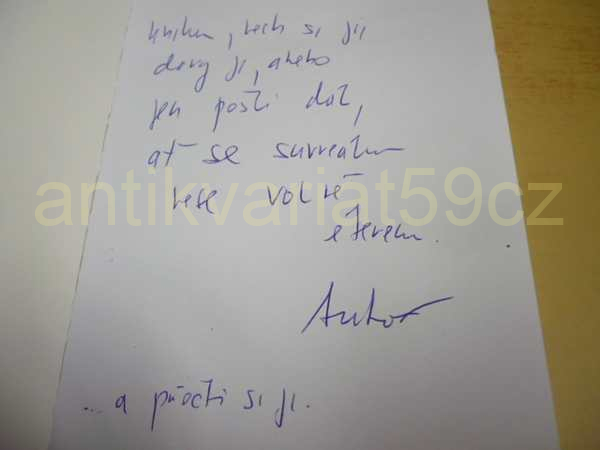 knihu, nech si ji
daruj ji, anebo
jen pošli dál,
ať se surrealism
nese volně
éterem.
antikvariat59cz
Autor
... a přečti si ji.